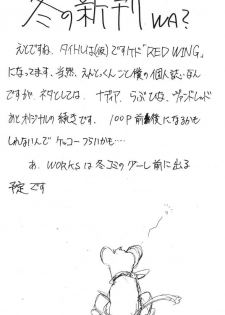 冬の新刊 WA?
えとですね、タイトルは(仮)ですけド"RED WING"
になってます。当然、えとっくんこと僕の個人誌なん
ですが、ネタとしては ナディア、らぶひな、ヴァンドレッド
あとオリジナルの続きです。100P前後になるかも
しれないんで ケッコーつらいかも…
あ、WORKSは冬コミの少し前に出る
予定です